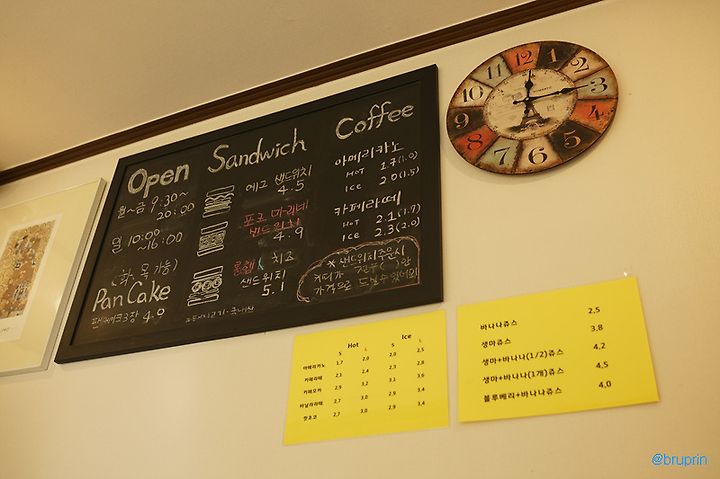 Open
월~금 9:30~
20:00
일 10:00
~16:00
(화.목 가능)
PanCake
팬케이크3장 4.9
Sandwich
에그 샌드위치
4.5
포크 마리네
샌드위치
4.9
치즈
샌드위치
5.1
Coffee
아메리카노
HOT 1.7(1.0)
ICE 2.0(1.5)
카페라떼
HOT 2.1(1.7)
ICE 2.3(2.0)
※ 샌드위치주문시
커피가
가격으로 드실수있어요
12 1 2 3 4 5 6 7 8 9 10 11
Hot Ice
S L S L
아메리카노 1,7 2,0 2,0 2,5
카페라떼 2,1 2,4 2,3 2,8
카페모카 2,9 3,2 3,1 3,6
바닐라라떼 2,7 3,0 2,9 3,4
핫초코 2,7 3,0 2,9 3,4
바나나쥬스 2,5
생마쥬스 3,8
생마+바나나(1/2)쥬스 4,2
생마+바나나(1개)쥬스 4,5
블루베리+바나나쥬스 4,0
@bruprin